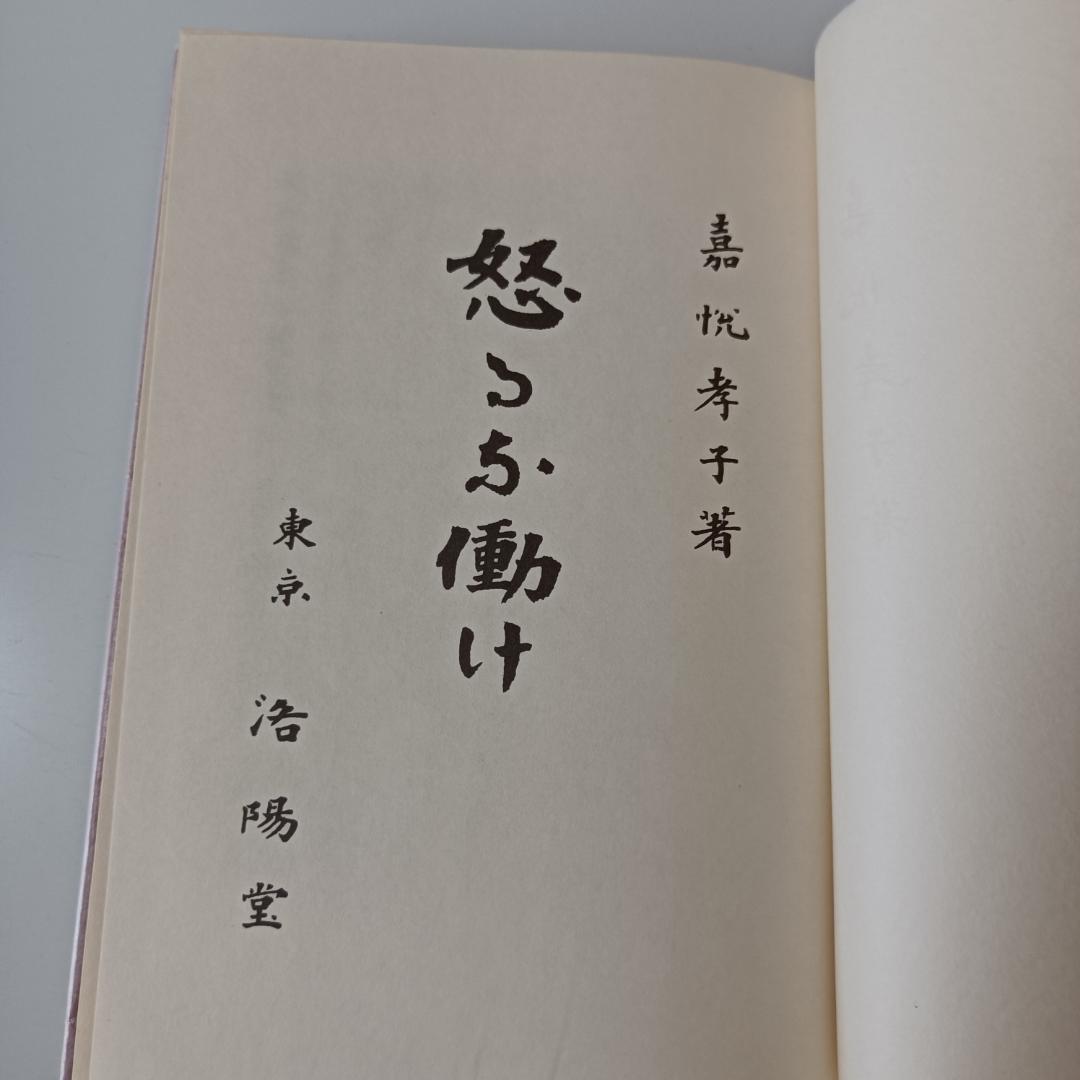 嘉悦孝子著
怒るな働け
東京 洛陽堂